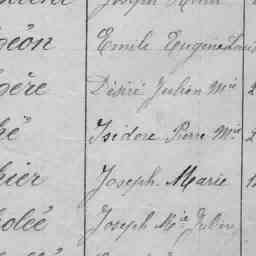 geon Emile Eugène Louis
gère Désiré Julien Mie 2
hé Isidore Pierre Mie 2
hier Joseph Marie 1
olée Joseph Mie Julien